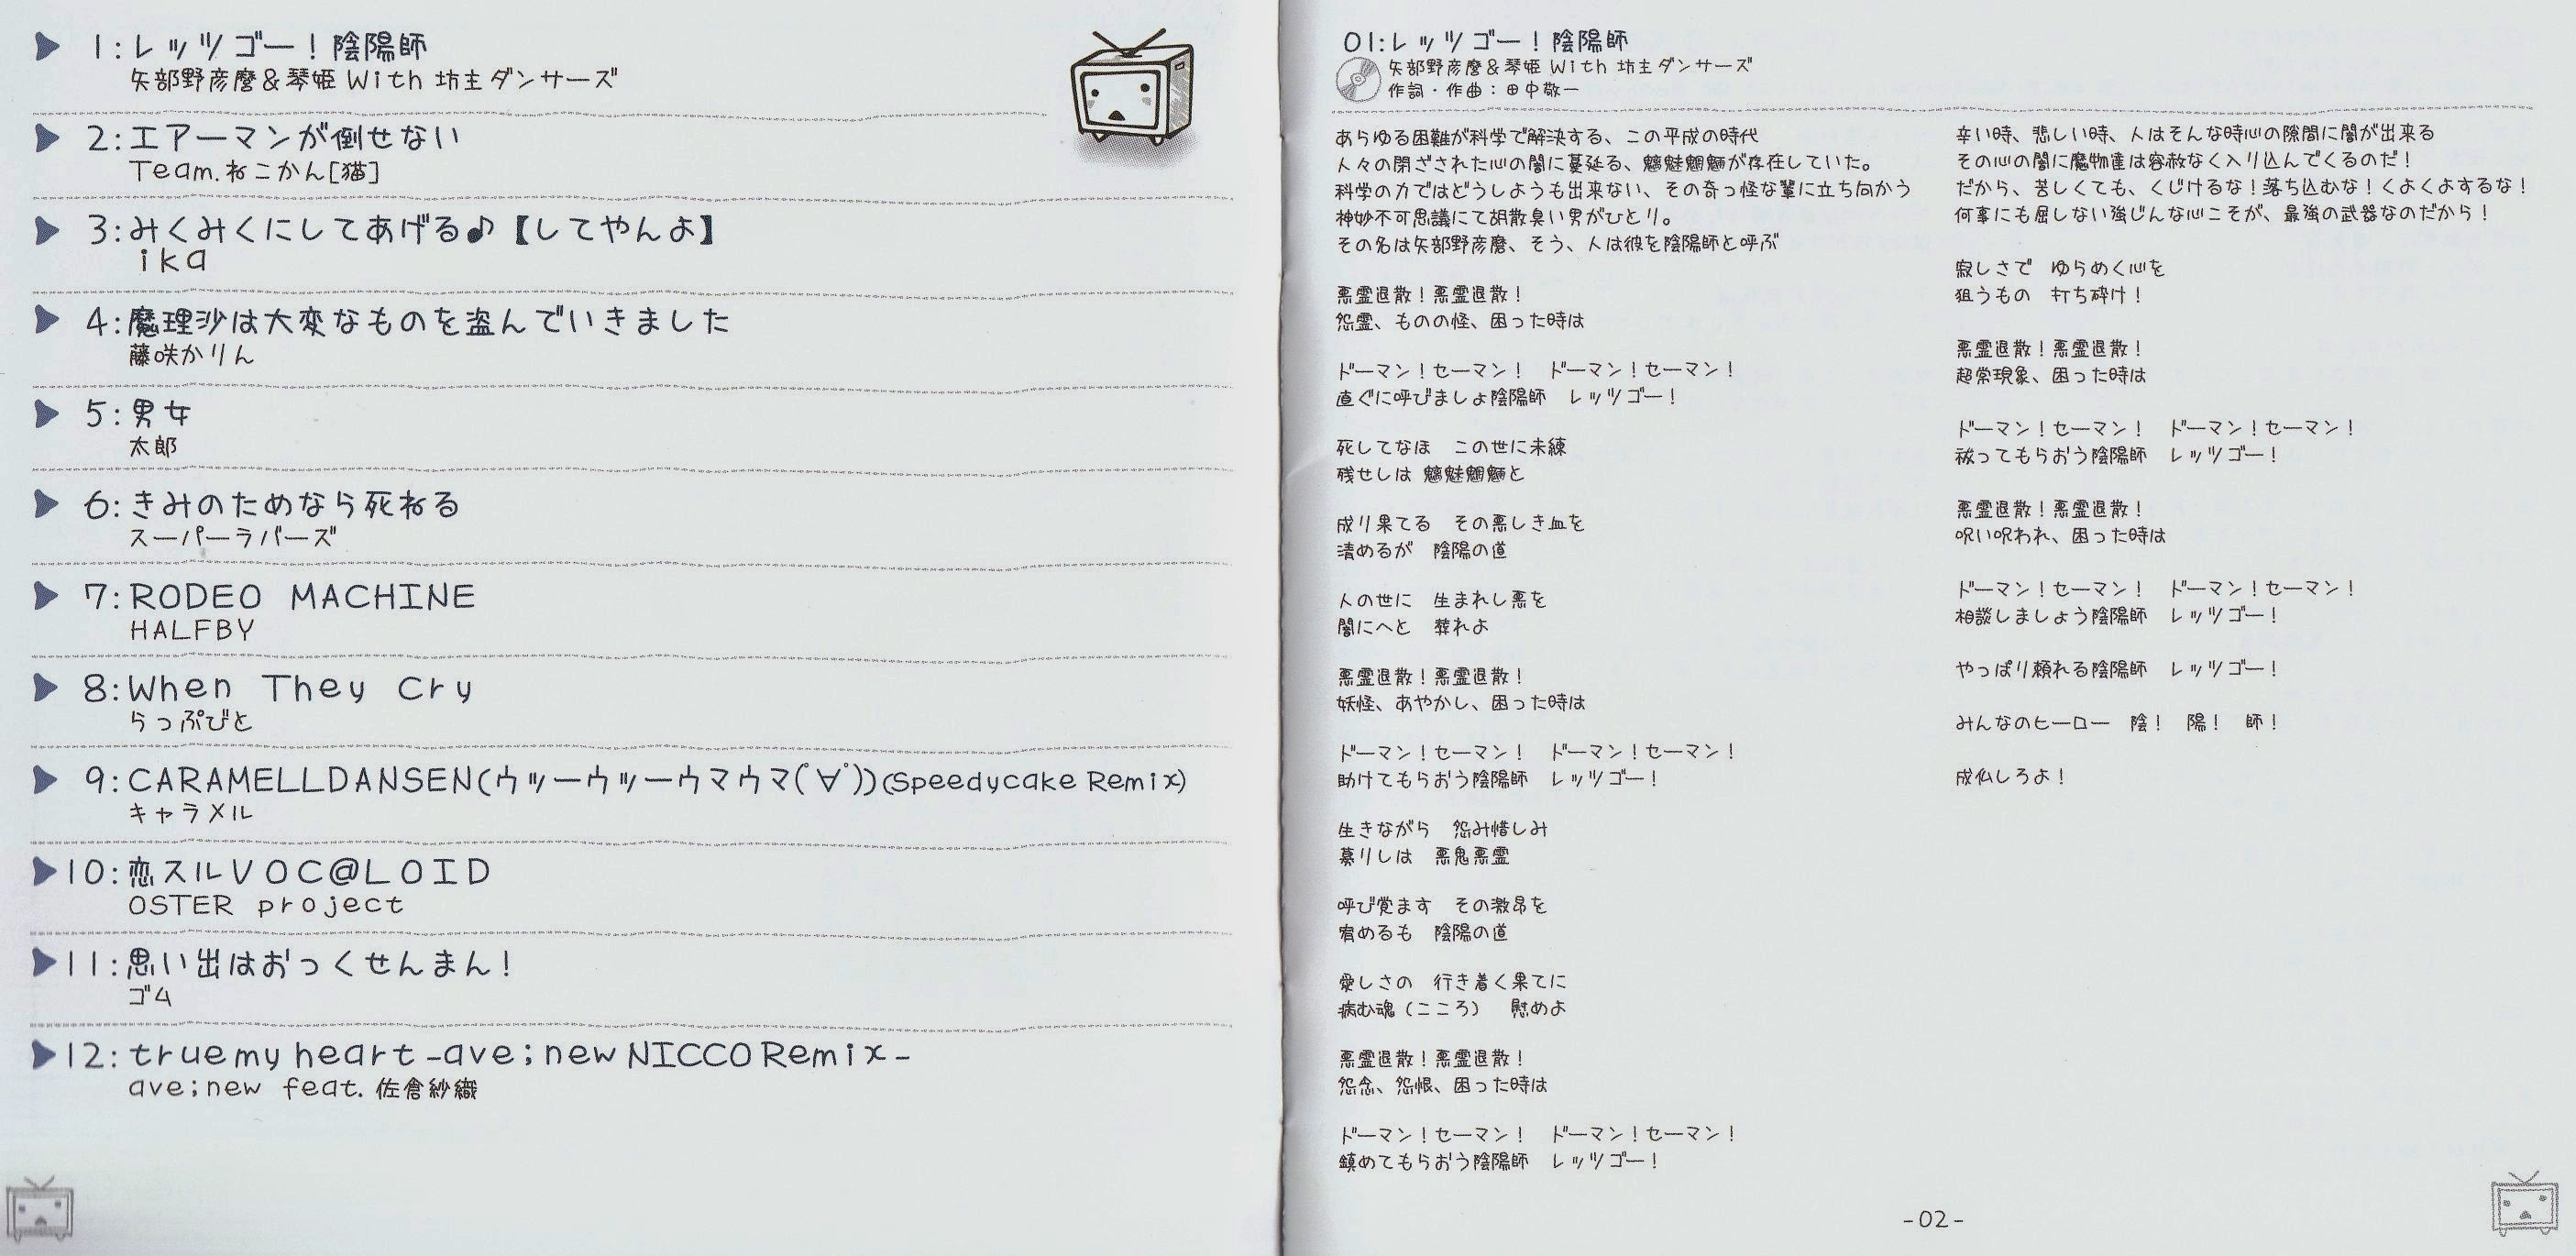 1:レッツゴー！陰陽師
矢部野彦麿&琴姫 With 坊主ダンサーズ
2:エアーマンが倒せない
Team.ねこかん[猫]
3:みくみくにしてあげる♪【してやんよ】
ika
4:魔理沙は大変なものを盗んでいきました
藤咲かりん
5:男女
太郎
6:きみのためなら死ねる
スーパーラバーズ
7:RODEO MACHINE
HALFBY
8:When They Cry
らっぷびと
9:CARAMELLDANSEN(ウッーウッーウマウマ(ﾟ∀ﾟ))(Speedycake Remix)
キャラメル
10:恋スルVOC@LOID
OSTER project
11:思い出はおっくせんまん！
ゴム
12:true my heart -ave;new NICCO Remix-
ave;new feat. 佐倉紗織
01:レッツゴー！陰陽師
矢部野彦麿&琴姫 With 坊主ダンサーズ
作詞・作曲：田中敬一
あらゆる困難が科学で解決する、この平成の時代
人々の閉ざされた心の闇に蔓延る、魑魅魍魎が存在していた。
科学の力ではどうしようも出来ない、その奇っ怪な輩に立ち向かう
神妙不可思議にて胡散臭い男がひとり。
その名は矢部野彦麿、そう、人は彼を陰陽師と呼ぶ
悪霊退散！悪霊退散！
怨霊、ものの怪、困った時は
ドーマン！セーマン！　ドーマン！セーマン！
直ぐに呼びましょ陰陽師　レッツゴー！
死してなほ　この世に未練
残せしは 魑魅魍魎と
成り果てる　その悪しき血を
清めるが　陰陽の道
人の世に　生まれし悪を
闇にへと　葬れよ
悪霊退散！悪霊退散！
妖怪、あやかし、困った時は
ドーマン！セーマン！　ドーマン！セーマン！
助けてもらおう陰陽師　レッツゴー！
生きながら　怨み惜しみ
募りしは　悪鬼悪霊
呼び覚ます　その激昂を
宥めるも　陰陽の道
愛しさの　行き着く果てに
病む魂（こころ）　慰めよ
悪霊退散！悪霊退散！
怨念、怨恨、困った時は
ドーマン！セーマン！　ドーマン！セーマン！
鎮めてもらおう陰陽師　レッツゴー！
辛い時、悲しい時、人はそんな時心の隙間に闇が出来る
その心の闇に魔物達は容赦なく入り込んでくるのだ！
だから、苦しくても、くじけるな！落ち込むな！くよくよするな！
何事にも屈しない強じんな心こそが、最強の武器なのだから！
寂しさで　ゆらめく心を
狙うもの　打ち砕け！
悪霊退散！悪霊退散！
超常現象、困った時は
ドーマン！セーマン！　ドーマン！セーマン！
祓ってもらおう陰陽師　レッツゴー！
悪霊退散！悪霊退散！
呪い呪われ、困った時は
ドーマン！セーマン！　ドーマン！セーマン！
相談しましょう陰陽師　レッツゴー！
やっぱり頼れる陰陽師　レッツゴー！
みんなのヒーロー　陰！　陽！　師！
成仏しろよ！
-02-